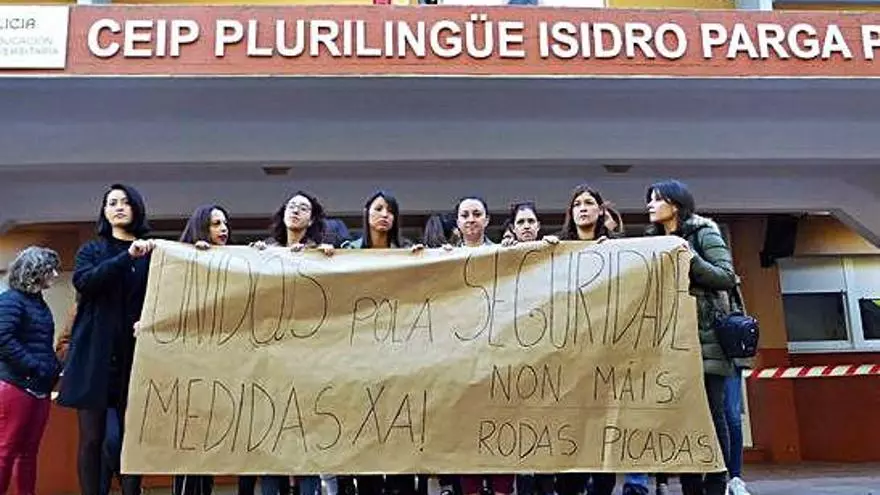 LICIA
CEIP PLURILINGÜE ISIDRO PARGA P
UNIDOS POLA SEGURIDADE
MEDIDAS XA!
NON MÁIS
RODAS PICADAS